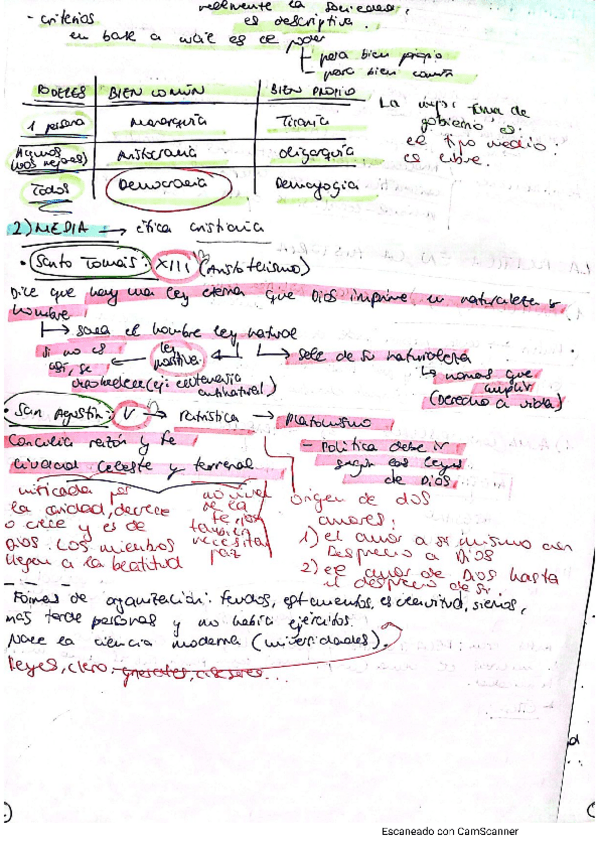 realmente la sociedad,
- criterios es descriptiva.
en base a
para bien propio
para bien común
PODERES BIEN COMÚN BIEN PROPIO
1 persona monarquía Tiranía
Algunos (los mejores) Aristocracia oligarquía
Todos Democracia Demagogia
La mejor forma de
gobierno es
el tipo medio:
2) MEDIA → ética cristiana
• Santo Tomás: XIII (Aristotelismo)
Dice que hay una ley eterna que Dios imprime en naturaleza y
hombre
→ saca el hombre ley natural
si no es ley positiva → sale de su naturaleza
así, se
desobedece (ej: eutanasia
antinatural)
→ normas que
cumplir
(Derecho a vida)
• San Agustín: V → Patrística → Platonismo
Concilia razón y fe
Ciudad celeste y terrenal
- Política debe ir
según las leyes
de Dios
unificada por
la caridad, decrece
o crece y es de
Dios. Los miembros
llegan a la beatitud
no nivel
de la
fe,
también
necesita
paz
origen de dos
amores:
1) el amor a sí mismo con
desprecio a Dios
2) el amor de Dios hasta
el desprecio de sí.
Formas de organización: feudos, estamentos, esclavitud, siervos,
más tarde personas y no había ejércitos.
Nace la ciencia moderna (universidades).
Reyes, clero,
Escaneado con CamScanner